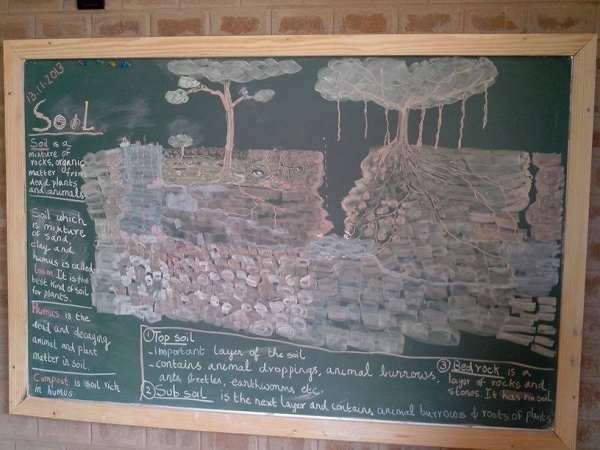 13.11.2013
SOIL
Soil is a
mixture of
rocks, organic
matter from
dead plants
and animals
Soil which
is mixture
of sand,
clay and
humus is called
Loam. It is the
best kind of soil
for plants.
Humus is the
dead and decaying
animal and plant
matter in soil.
Compost is soil rich
in humus
① Top soil
- important layer of the soil
- contains animal droppings, animal burrows,
ants, beetles, earthworms etc.
② Sub soil is the next layer and contains animal burrows & roots of plants
③ Bedrock is a
layer of rocks and
stones. It has no soil